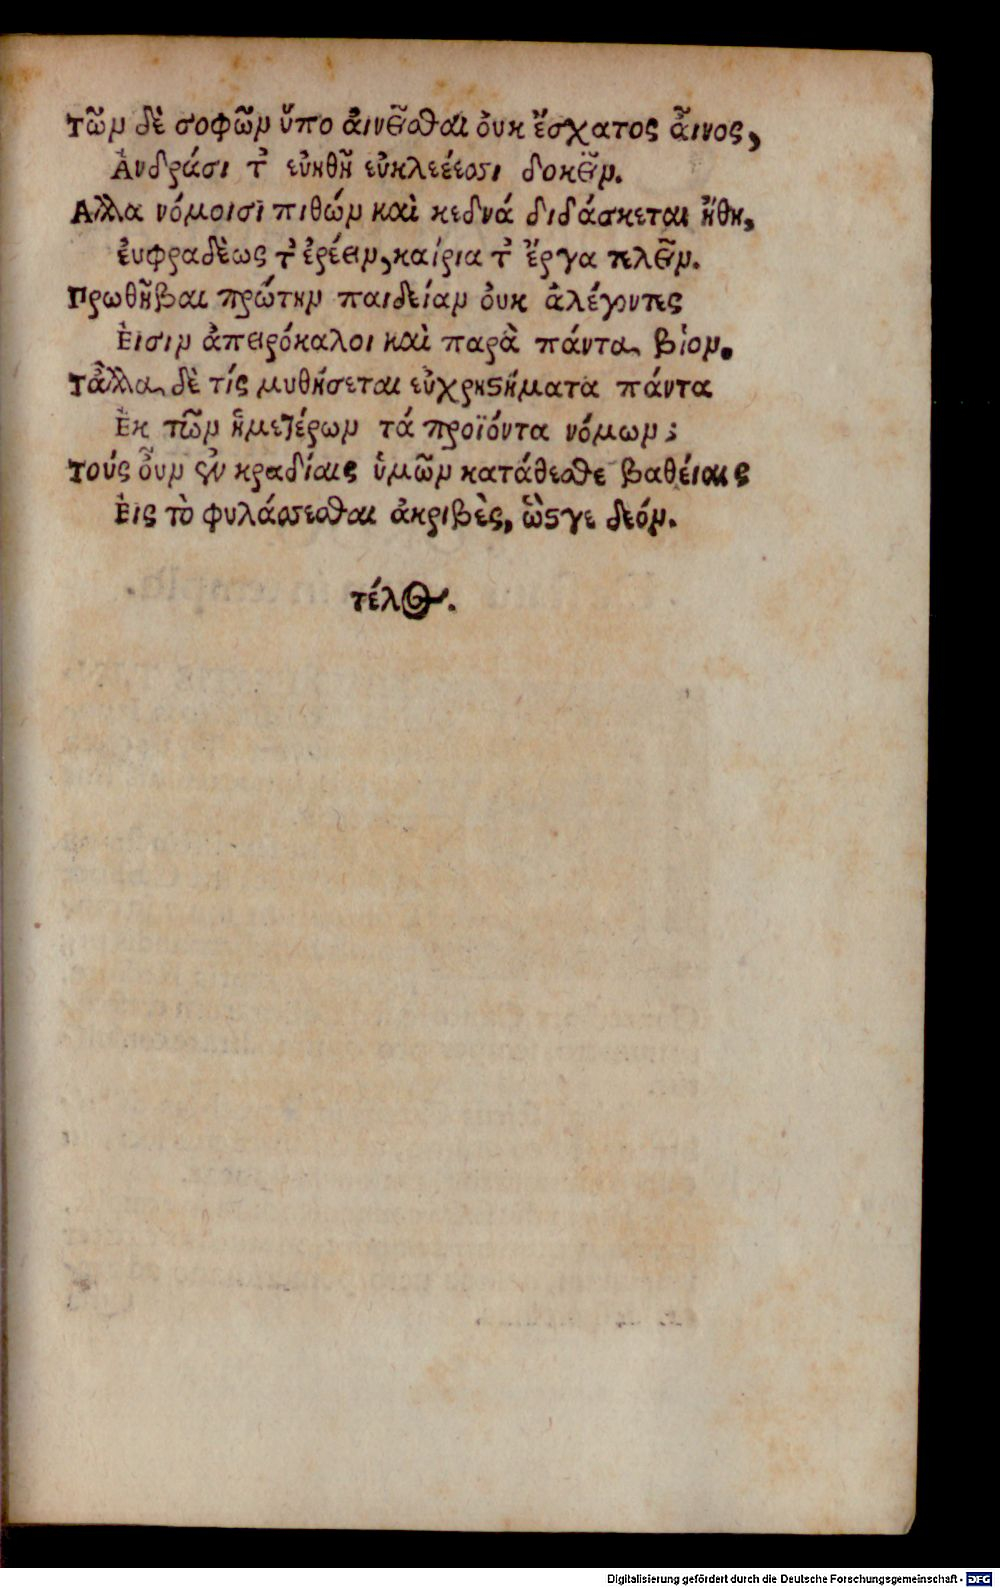 Τῶν δὲ σοφῶν ὕπο ἀινεῖσθαι ὀυκ ἔσχατος ἆινος,
Ἀνδράσι τ' εὐηθῆ εὐκλεέεσσι δοκεῖν.
Αλλα νόμοισι πιθών καὶ κεδνά διδάσκεται ἤθη,
ἐυφραδὲως τ' ἐρέειν, καίρια τ' ἔργα τελεῖν.
Πρωθῆβαι πρώτην παιδείαν ὀυκ ἀλέγοντες
Ἐισιν ἀπειρόκαλοι καὶ παρὰ πάντα βίον.
Τἆλλα δὲ τίς μυθήσεται εὐχρηστήματα πάντα
Ἐκ τῶν ἡμετέρων τά προϊόντα νόμων;
Τούς οὖν σὺν κραδίαις ὑμῶν κατάθεσθε βαθείαις
Ἐις τὸ φυλάσσεσθαι ἀκριβὲς, ὥστγε δεόν.
τέλος.
Digitalisierung gefördert durch die Deutsche Forschungsgemeinschaft - DFG